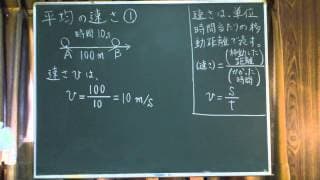 平均の速さ①
時間 10s
A 100m B
速さ v は、
v = 100/10 = 10 m/s
速さは、単位
時間当たりの移
動距離で表す。
(速さ) = (移動した距離)/(かかった時間)
v = s/t